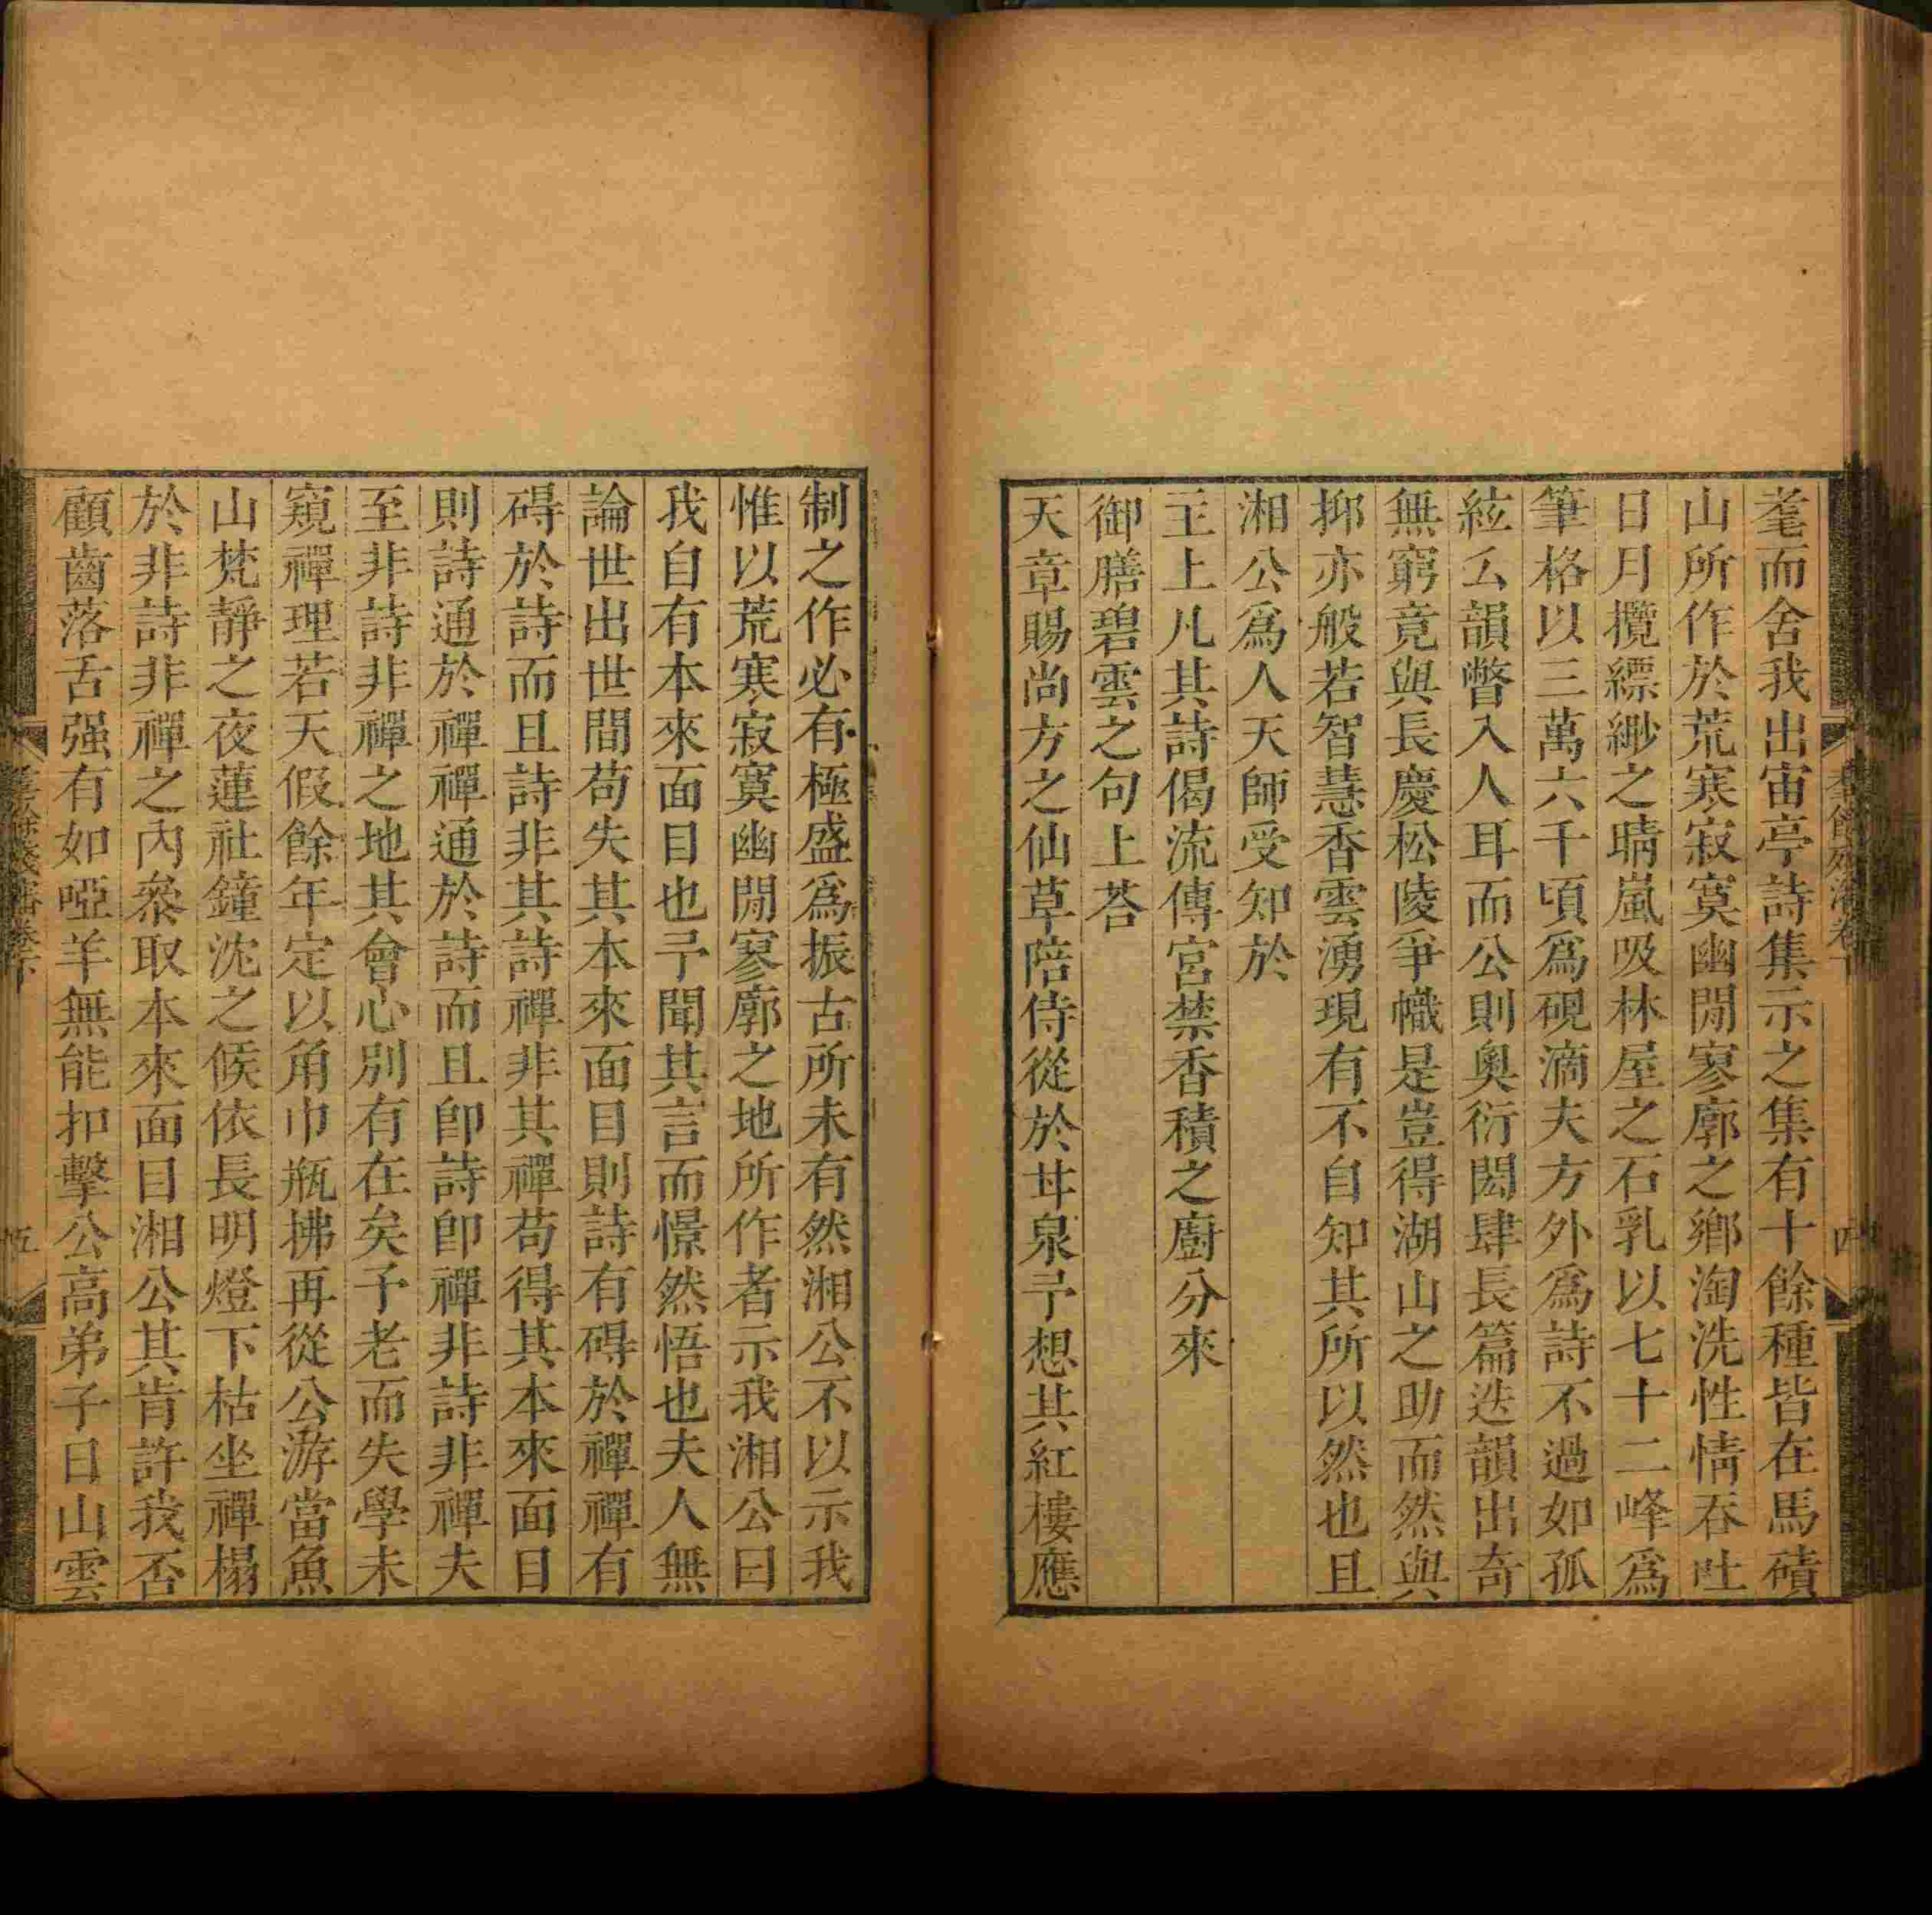 耄而舍我出宙亭詩集示之集有十餘種皆在馬磧
山所作於荒寒寂寞幽閒寥廓之鄉淘洗性情吞吐
日月攬縹緲之晴嵐吸林屋之石乳以七十二峰爲
筆格以三萬六千頃爲硯滴夫方外爲詩不過如孤
絃么韻瞥入人耳而公則奧衍閎肆長篇迭韻出奇
無窮竟與長慶松陵爭幟是豈得湖山之助而然與
抑亦般若智慧香雲湧現有不自知其所以然也且
湘公爲人天師受知於
主上凡其詩偈流傳宮禁香積之廚分來
御膳碧雲之句上荅
天章賜尚方之仙草陪侍從於甘泉予想其紅樓應
四
制之作必有極盛爲振古所未有然湘公不以示我
惟以荒寒寂寞幽閒寥廓之地所作者示我湘公曰
我自有本來面目也予聞其言而憬然悟也夫人無
論世出世間苟失其本來面目則詩有碍於禪禪有
碍於詩而且詩非其詩禪非其禪苟得其本來面目
則詩通於禪禪通於詩而且卽詩卽禪非詩非禪夫
至非詩非禪之地其會心別有在矣予老而失學未
窺禪理若天假餘年定以角巾瓶拂再從公游當魚
山梵靜之夜蓮社鐘沈之候依長明燈下枯坐禪榻
於非詩非禪之內叅取本來面目湘公其肯許我否
顧齒落舌强有如啞羊無能扣擊公高弟子日山雲
五